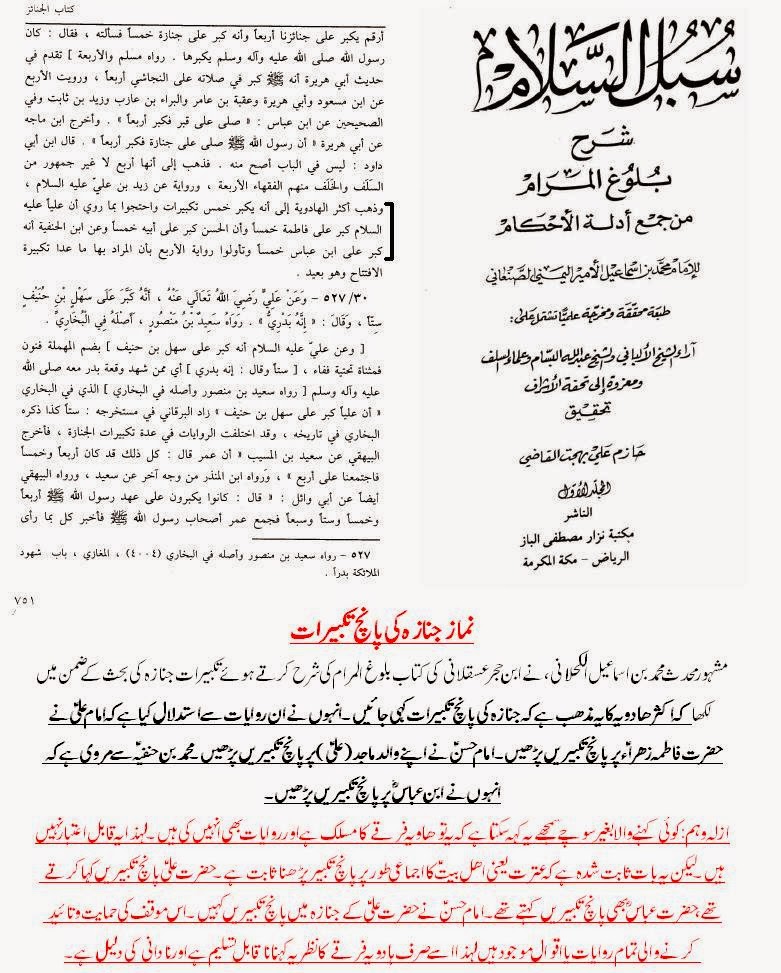 كتاب الجنائز
أرقم يكبر على جنائزنا أربعاً وأنه كبر على جنازة خمساً فسألته ، فقال : كان
رسول الله صلى الله عليه وآله وسلم يكبرها . رواه مسلم والأربعة ] تقدم في
حديث أبي هريرة أنه ﷺ كبر في صلاته على النجاشي أربعاً ، ورويت الأربع
عن ابن مسعود وأبي هريرة وعقبة بن عامر والبراء بن عازب وزيد بن ثابت وفي
الصحيحين عن ابن عباس : « صلى على قبر فكبر أربعاً » . وأخرج ابن ماجه
عن أبي هريرة « أن رسول الله ﷺ صلى على جنازة فكبر أربعاً » . قال ابن أبي
داود : ليس في الباب أصح منه . فذهب إلى أنها أربع لا غير جمهور من
السلف والخلف منهم الفقهاء الأربعة ، ورواية عن زيد بن عليّ عليه السلام ،
وذهب أكثر الهادوية إلى أنه يكبر خمس تكبيرات واحتجوا بما روي أن علياً عليه
السلام كبر على فاطمة خمساً وأن الحسن كبر على أبيه خمساً وعن ابن الحنفية أنه
كبر على ابن عباس خمساً وتأولوا رواية الأربع بأن المراد بها ما عدا تكبيرة
الافتتاح وهو بعيد .
٥٢٧/٣٠ - وَعَنْ عَلِيٍّ رَضِيَ اللَّهُ تَعَالَى عَنْهُ ، أَنَّهُ كَبَّرَ عَلَى سَهْلِ بْنِ حُنَيْفٍ
سِتًّا ، وَقَالَ : « إِنَّهُ بَدْرِيٌّ » . رَوَاهُ سَعِيدُ بْنُ مَنْصُورٍ ، أَصْلُهُ فِي الْبُخَارِيِّ .
[ وعن عليّ عليه السلام أنه كبر على سهل بن حنيف ] بضم المهملة فنون
فمثناة تحتية ففاء ، [ ستاً وقال : إنه بدري ] أي ممن شهد وقعة بدر معه صلى الله
عليه وآله وسلم [ رواه سعيد بن منصور وأصله في البخاري ] الذي في البخاري
« أن علياً كبر على سهل بن حنيف » زاد البرقاني في مستخرجه : ستاً كذا ذكره
البخاري في تاريخه ، وقد اختلفت الروايات في عدة تكبيرات الجنازة ، فأخرج
البيهقي عن سعيد بن المسيب « أن عمر قال : كل ذلك قد كان أربعاً وخمساً
فاجتمعنا على أربع » ، ورواه ابن المنذر من وجه آخر عن سعيد ، ورواه البيهقي
أيضاً عن أبي وائل : « قال : كانوا يكبرون على عهد رسول الله ﷺ أربعاً
وخمساً وستاً وسبعاً فجمع عمر أصحاب رسول الله ﷺ فأخبر كل بما رأى
٥٢٧ - رواه سعيد بن منصور وأصله في البخاري (٤٠٠٤) ، المغازي ، باب شهود
الملائكة بدراً .
٧٥١
سُبُلُ السَّلَامِ
شرح
بلوغ المرام
من جمع أدلة الأحكام
للإمام محمد بن إسماعيل الأمير اليمني الصنعاني
طبعة محققة ومخرجة علمياً تشتمل على :
آراء الشيخ الألباني والشيخ عبد الله البسام وعلماء السلف
ومعزوة إلى تحفة الأشراف
تحقيق
حازم علي بهجت القاضي
المجلد الأول
الناشر
مكتبة نزار مصطفى الباز
الرياض - مكة المكرمة
نماز جنازہ کی پانچ تکبیرات
مشہور محدث محمد بن اسماعیل الکحلانی ، نے ابن حجر عسقلانی کی کتاب بلوغ المرام کی شرح کرتے ہوئے تکبیرات جنازہ کی بحث کے ضمن میں
لکھا کہ اکثر ھادویہ کا یہ مذھب ہے کہ جنازہ کی پانچ تکبیرات کہی جائیں۔ انہوں نے ان روایات سے استدلال کیا ہے کہ امام علیؑ نے
حضرت فاطمہ زھراءؑ پر پانچ تکبیریں پڑھیں۔ امام حسنؑ نے اپنے والد ماجد (علیؑ) پر پانچ تکبیریں پڑھیں۔ محمد بن حنفیہؒ سے مروی ہے کہ
انہوں نے ابن عباسؓ پر پانچ تکبیریں پڑھیں۔
ازلہ وہم: کوئی کہنے والا بغیر سوچے سمجھے یہ کہہ سکتا ہے کہ یہ تو ھادویہ فرقے کا مسلک ہے اور روایات بھی انہیں کی ہیں۔ لہذا یہ قابل اعتبار نہیں
ہیں۔ لیکن یہ بات ثابت شدہ ہے کہ عترت یعنی اھل بیتؑ کا اجماعی طور پر پانچ تکبیر پڑھنا ثابت ہے۔ حضرت علیؑ پانچ تکبیریں کہا کرتے
تھے، حضرت عباسؓ بھی پانچ تکبیریں کہتے تھے۔ امام حسنؑ نے حضرت علیؑ کے جنازہ میں پانچ تکبیریں کہیں۔ اس موقف کی حمایت و تائید
کرنے والی تمام روایات یا اقوال موجود ہیں لہذا اسے صرف ہادویہ فرقے کا نظریہ کہنا ناقابل تسلیم ہے اور نادانی کی دلیل ہے۔